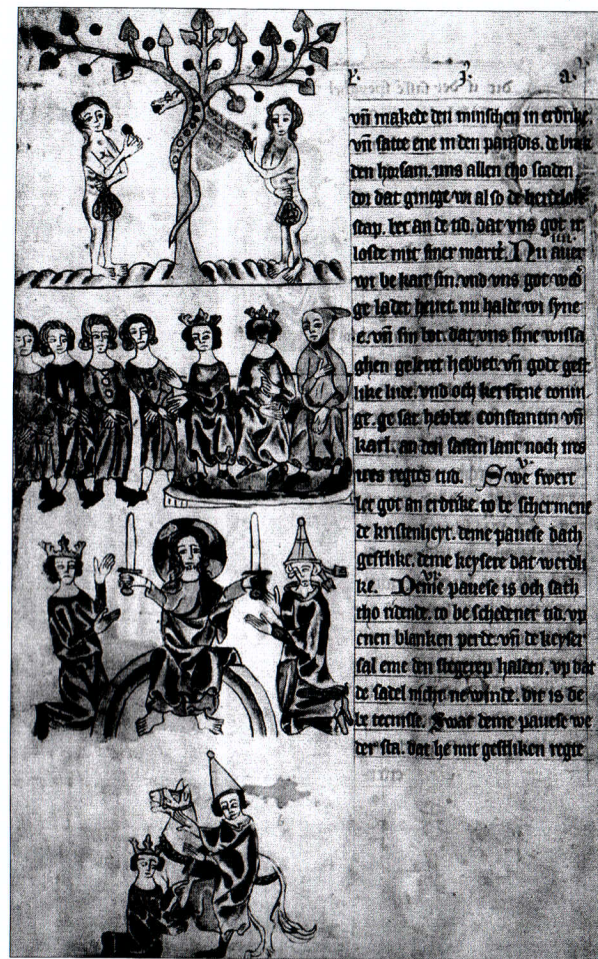 vñ makede den minschen in erdrike.
vñ satte ene in den paradis. de brak
den horsam. uns allen tho scaden
dor dat ginge wi al so de herdelose
scap. bet an de tid. dat vns got ir
loste mit siner marter. Nu auer
wi be kart sin. vnd vns got wed
ge ladet heuet. nu halde wi syne
e. vñ sin bot. dat vns sine wissa
ghen geleret hebbet. vñ gode gest
like lude. vnd och kerstene conin
ge. ge sat hebbet. constantin vñ
karl. an den sassen lant noch ires
ires regtes tud. Swe swert
let got an erdrike. to be schermene
de kristenheyt. deme pauese dath
gestlike. deme keysere dat werdli
ke. Deme pauese is och sath
tho ridende. to be schedener tid. vp
enen blanken perde. vñ de keyser
sal eme den stegerep halden. vp dat
de sadel nicht ne winde. dit is de
be tecnisse. Swat deme pauese we
der sta. dat he mit gestliken regte